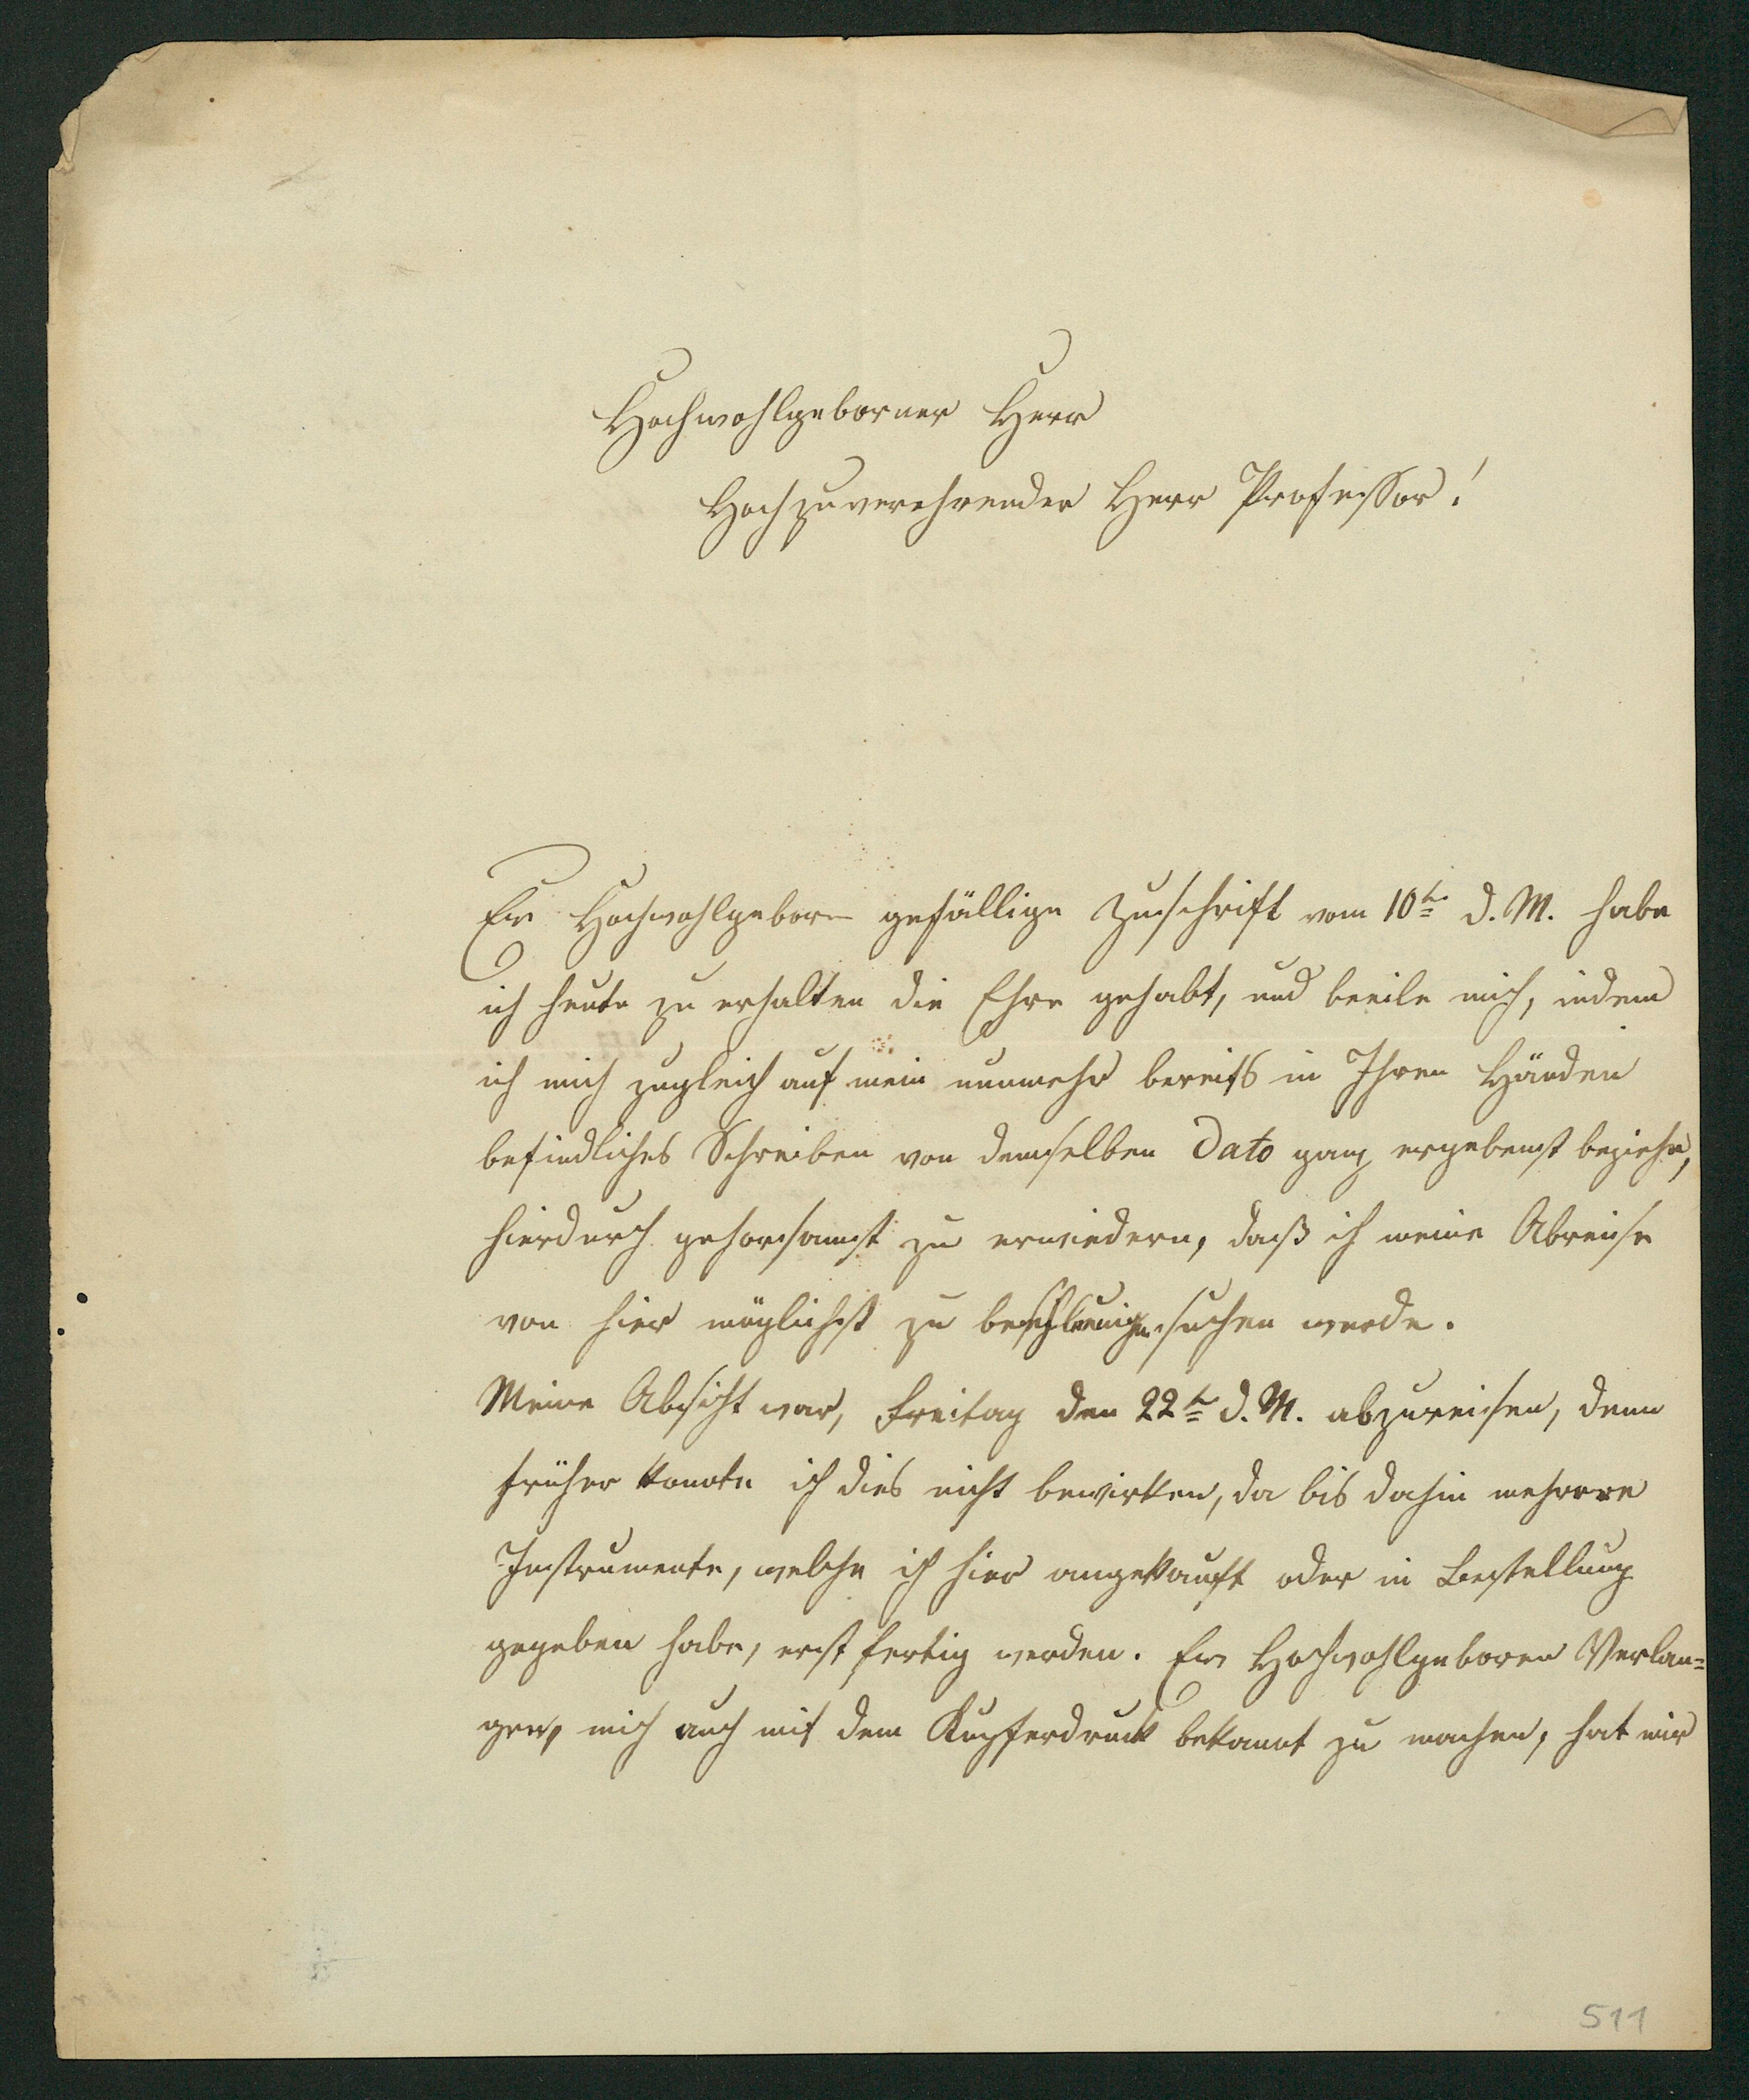 Hochwohlgeborner Herr
Hochzuverehrender Herr Professor!
Ew Hochwohlgeborn gefällige Zuschrift vom 10ten d. M. habe
ich heute zu erhalten die Ehre gehabt, und beeile mich, indem
ich mich zugleich auf mein nunmehr bereits in Ihren Händen
befindliches Schreiben von demselben Dato ganz ergebenst beziehe,
hierdurch gehorsamst zu erwiedern, daß ich meine Abreise
von hier möglichst zu beschleunigen suchen werde.
Meine Absicht war, Freitag den 22ten d. M. abzureisen, denn
früher konnte ich dies nicht bewirken, da bis dahin mehrere
Instrumente, welche ich hier angekauft oder in Bestellung
gegeben habe, erst fertig werden. Ew Hochwohlgeboren Verlan=
gen, mich auch mit dem Kupferdruck bekannt zu machen, hat mir
511